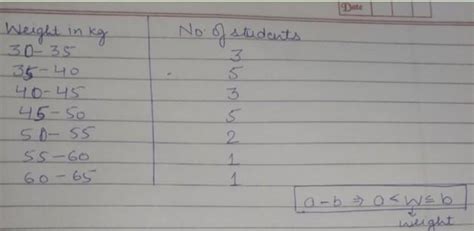 Date
Weight in kg No. of students
30-35 3
35-40 5
40-45 3
45-50 5
50-55 2
55-60 1
60-65 1
a-b ⇒ a < W ≤ b
weight